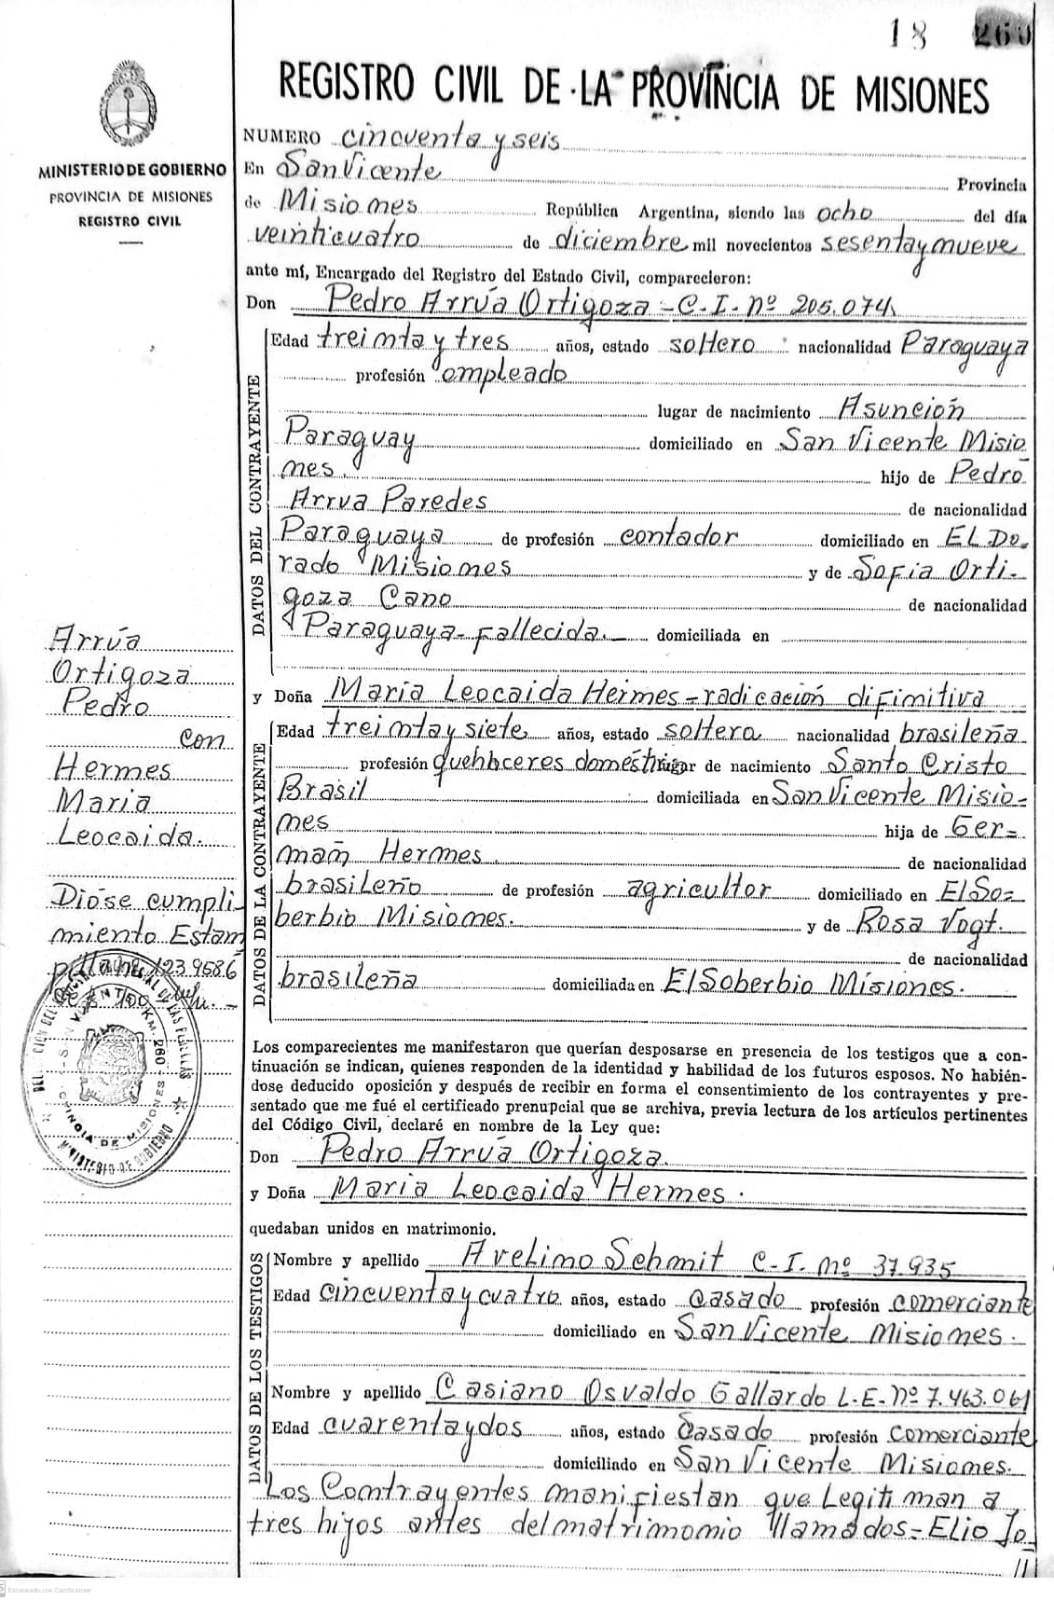 18 260
REGISTRO CIVIL DE LA PROVINCIA DE MISIONES
MINISTERIO DE GOBIERNO
PROVINCIA DE MISIONES
REGISTRO CIVIL
NUMERO cincuenta y seis
En San Vicente Provincia
de Misiones República Argentina, siendo las ocho del día
veinticuatro de diciembre mil novecientos sesenta y nueve
ante mí, Encargado del Registro del Estado Civil, comparecieron:
Don Pedro Arrúa Ortigoza - C.I. Nº 205.074
DATOS DEL CONTRAYENTE
Edad treinta y tres años, estado soltero nacionalidad Paraguaya
profesión empleado
lugar de nacimiento Asunción
Paraguay domiciliado en San Vicente Misio
nes. hijo de Pedro
Arrua Paredes de nacionalidad
Paraguaya de profesión contador domiciliado en EL Do.
rado Misiones y de Sofia Orti-
goza Cano de nacionalidad
Paraguaya - fallecida. domiciliada en
Arrúa
Ortigoza
Pedro
con
Hermes
Maria
Leocaida.
Dióse cumpli-
miento Estam
pilla nº 1239586
y Doña María Leocaida Hermes - radicación difinitiva
DATOS DE LA CONTRAYENTE
Edad treinta y siete años, estado soltera nacionalidad brasileña
profesión quehaceres domésticos lugar de nacimiento Santo Cristo
Brasil domiciliada en San Vicente Misio-
nes hija de Ger=
man Hermes. de nacionalidad
brasileño de profesión agricultor domiciliado en El So=
berbio Misiones. y de Rosa Vogt.
de nacionalidad
brasileña domiciliada en El Soberbio Misiones.
Los comparecientes me manifestaron que querían desposarse en presencia de los testigos que a con-
tinuación se indican, quienes responden de la identidad y habilidad de los futuros esposos. No habién-
dose deducido oposición y después de recibir en forma el consentimiento de los contrayentes y pre-
sentado que me fué el certificado prenupcial que se archiva, previa lectura de los artículos pertinentes
del Código Civil, declaré en nombre de la Ley que:
Don Pedro Arrúa Ortigoza.
y Doña Maria Leocaida Hermes.
quedaban unidos en matrimonio.
DATOS DE LOS TESTIGOS
Nombre y apellido Avelino Schmit C.I. Nº 37.935
Edad cincuenta y cuatro años, estado Casado profesión comerciante
domiciliado en San Vicente Misiones.
Nombre y apellido Casiano Osvaldo Gallardo L.E. Nº 7.463.061
Edad cuarenta y dos años, estado Casado profesión comerciante
domiciliado en San Vicente Misiones.
Los Contrayentes manifiestan que Legitiman a
tres hijos antes del matrimonio llamados = Elio Jo
//
Escaneado con CamScanner